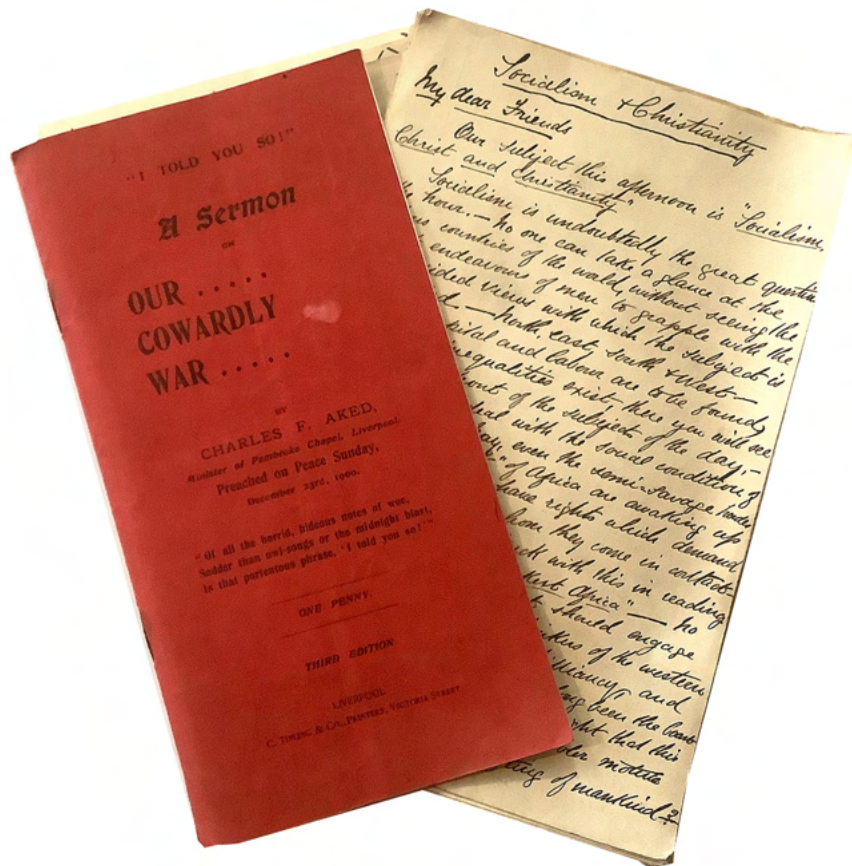 "I TOLD YOU SO!"
A Sermon
ON
OUR .....
COWARDLY
WAR .....
BY
CHARLES F. AKED,
Minister of Pembroke Chapel, Liverpool.
Preached on Peace Sunday,
December 23rd, 1900.
"Of all the horrid, hideous notes of woe,
Sadder than owl-songs or the midnight blast,
Is that portentous phrase, 'I told you so!'"
ONE PENNY.
THIRD EDITION.
LIVERPOOL
C. TINLING & CO., PRINTERS, VICTORIA STREET
Socialism & Christianity
My dear Friends
Our subject this afternoon is "Socialism,
Christ and Christianity"
Socialism is undoubtedly the great question
hour. — No one can take a glance at the
countries of the world, without seeing the
endeavours of men to grapple with the
views with which the subject is
— North, east South & West —
and labour are to be found,
inequalities exist there you will see
of the subject of the day, —
with the social condition of
even the semi-savage
of Africa are awaking up
have rights which demand
whom they come in contact —
with this in reading
Africa" — No
should engage
of the western
and
been the
that this
of mankind?